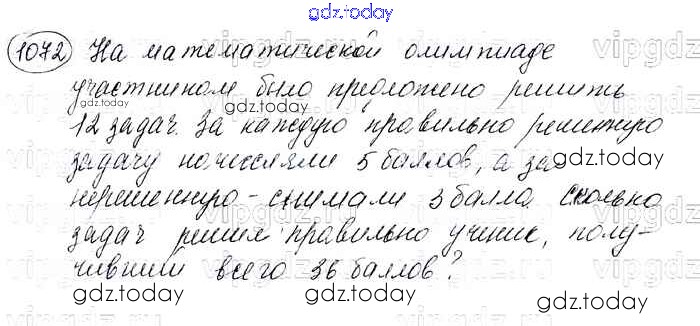 gdz.today
1072 На математической олимпиаде
участникам было предложено решить
12 задач. За каждую правильно решенную
задачу начисляли 5 баллов, а за
нерешенную - снимали 3 балла. Сколько
задач решил правильно ученик, полу-
чивший всего 36 баллов?
gdz.today
gdz.today
gdz.today
gdz.today
gdz.today
gdz.today
gdz.today